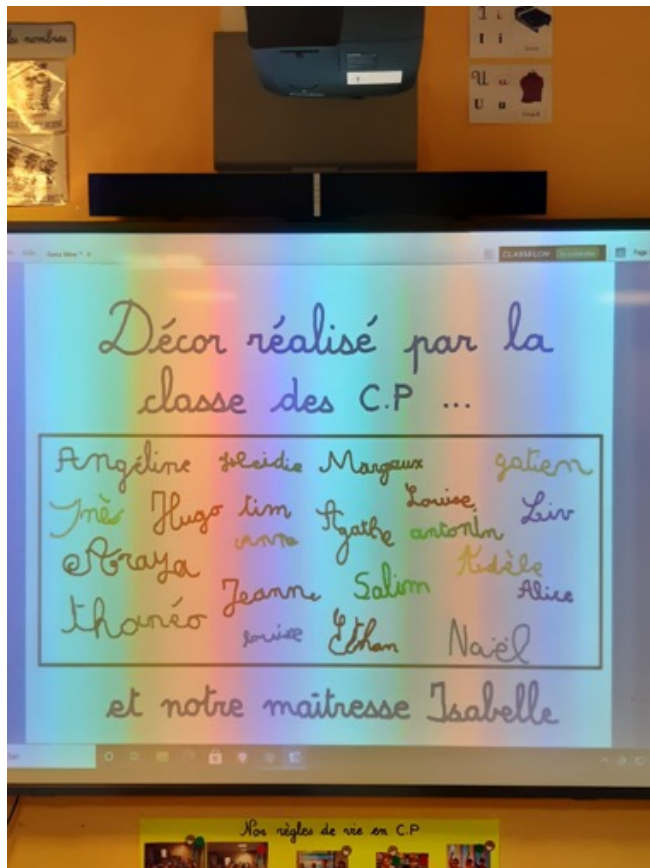 les nombres
I i
U u
U u
CLASSFLOW
Page
Décor réalisé par la
classe des C.P ...
Angéline Heidie Margaux gatien
Inès Hugo tim Agathe Louise Liv
anna antonin
Araya Jeanne Salim Adèle
Alice
thanéo louise Ethan Naël
et notre maîtresse Isabelle
Nos règles de vie en C.P